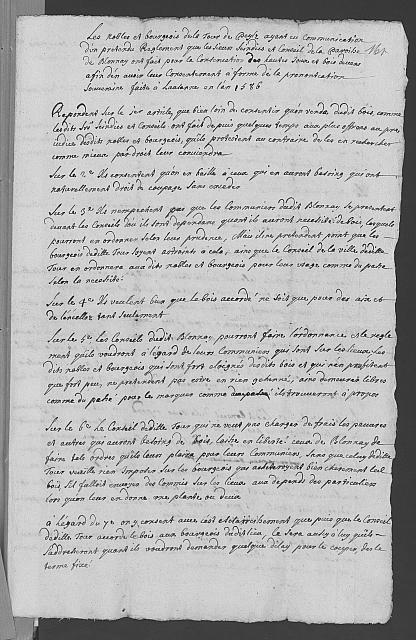 Les nobles et bourgeois de la Tour de Peylz ayant eu Communication
d'un pretendu Reglement que les Sieurs Sindics et Conseil de la Paroisse 161
de Blonnay ont fait pour la Conservation des hautes Joux et bois divers
afin d'en avoir leur Consentement à forme de la prononciation
Souveraine faite à Lausanne en l'an 1586
Repondent Sur le 1er article, que bien loin de consentir qu'on vende dudit bois, comme
lesdits Srs Sindics et Conseils ont fait depuis quelques temps aux plus offrans au pre
judice desdits nobles et bourgeois, qu'ils protestent au contraire de les en rechercher
comme mieux par droit leur conviendra
Sur le 2e Ils consentent qu'on en baille à ceux qui en auront besoing qui ont
naturellement droit de coupage Sans exceder
Sur le 3e Ils n'empechent pas que les Communiers dudit Blonnay se presentent
devant les Conseils où ils sont dependans quant ils auront necessité de bois lesquels
pourront en ordonner selon leur prudence, Mais ils ne pretendent point que les
bourgeois de ditte Tour soyent astraints à cela, ains que le Conseil de la ville de ditte
Tour en ordonnera aux dits nobles et bourgeois, pour leur usage comme du passé
selon la necessité
Sur le 4e Ils veulent bien que le bois accordé ne soit que pour des aix et
de lancellez tant seulement
Sur le 5e Les Conseils dudit Blonnay pourront faire l'ordonnance et le regle
ment qu'ils voudront à l'égard de leurs Communiers qui sont sur les lieux, les
dits nobles et bourgeois qui sont fort eloignés desdits bois et qui n'en profittent
que fort peu, ne pretendent pas estre en rien gehenné, ains demeurer libres
comme du passé pour le marquer comme ils trouveront à propos
Sur le 6e Le Conseil de ditte Tour qui ne veut pas charger de frais les pauvres
et autres qui auront besoing de bois, laisse en liberté ceux de Blonnay de
faire tels ordres qu'il leur plaira pour leurs Communiers, Sans que celuy de ditte
Tour vueille rien Imposer Sur les bourgeois qui acheteroyent bien cherement led.
bois, s'il falloit envoyer des Commis Sur les lieux aux depends des particuliers
lors qu'on leur en donne une plante ou deux
A l'égard du 7e on y consent avec cet eclaircissement que puis que le Conseil
de ditte Tour accorde le bois aux bourgeois dudit lieu, Ce sera aussy à luy qu'ils
s'addresseront quant ils voudront demander quelque delay pour le couper des le
terme fixé